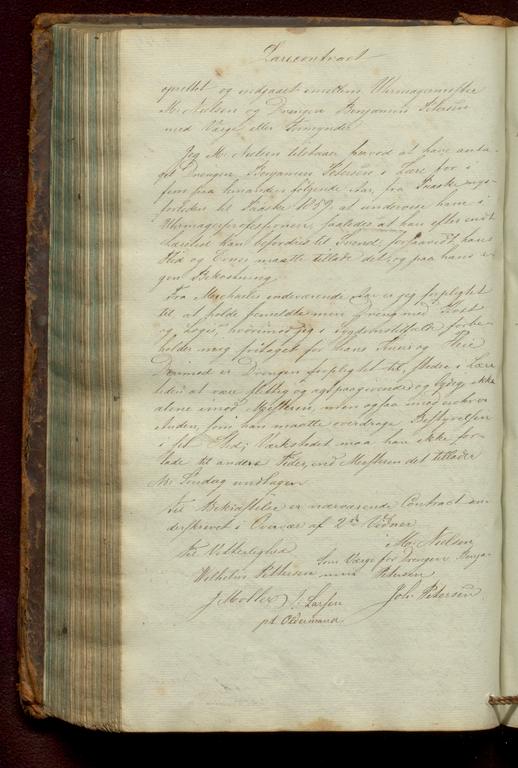 Lærecontract
oprettet og indgaaet imellem Uhrmagermester
M. Nielsen og Drengen Benjamin Petersen
med Værge eller Formynder
Jeg M. Nielsen tilstaaer herved at have anta-
get Drengen Benjamin Petersen i Lære for i
fem paa hinanden følgende Aar, fra Paaske
forleden til Paaske 1859, at underviise ham i
Uhrmagerprofessionen, saaledes at han efter endt
Læretid kan befordres til Svend, forsaavidt hans
Flid og Evner maatte tillade det, og paa hans e-
gen Bekostning
Fra Michaelis indeværende Aar er jeg forpligtet
til at holde formeldte min Dreng med Kost
og Logie, hvorimod jeg i Sygdomstilfælde forbe-
holder mig fritaget for hans Kuur og Pleie
Derimod er Drengen forpligtet til, stedse i Lære
tiden at være flittig og agtpaagivende og lydig ikke
alene imod Mesteren, men ogsaa imod enhver
Anden, som han maatte overdrage Bestyrelsen
i sit Sted; Værkstedet maa han ikke for-
lade til andre Tider, end Mesteren det tillader
Søndag undtagen
Til Bekræftelse er nærværende Contract un-
derskrevet i Overvær af 2de Vidner
Til Vitterlighed M. Nielsen
Som Værge for Drengen Benja-
Wilhelm Pettersen min Petersen
J Møller J. Larsen Joh Petersen
pt Oldermand